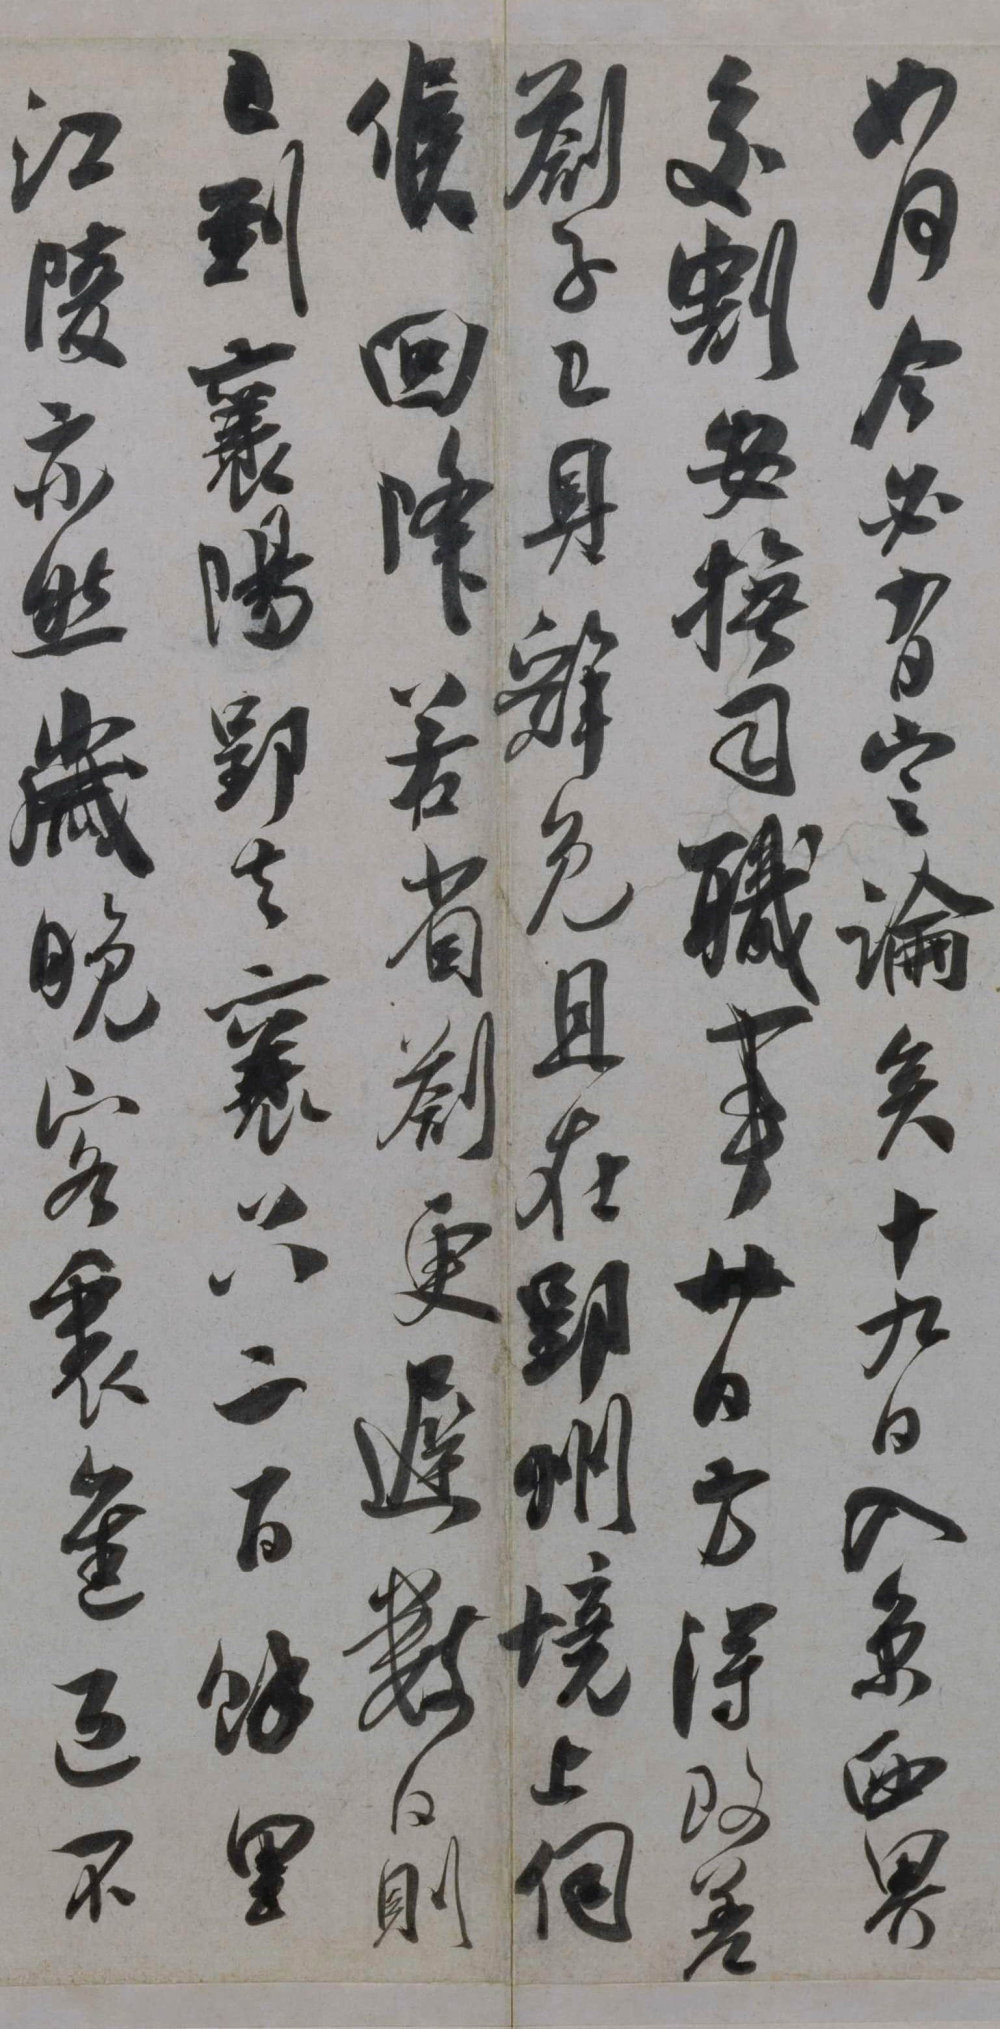 如何今必有定論矣十九日入京西界
交割安撫司職事廿日方得改差
劄子已具辭免且在郢州境上伺
候回降若省劄更遲數日則
已到襄陽郢去襄只二百餘里
江陵亦然歲晚客裏崔嵬不